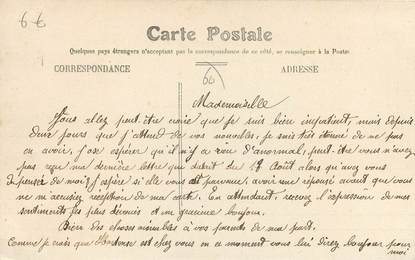 6 €
Carte Postale
Quelques pays étrangers n'acceptant pas la correspondance de ce côté, se renseigner à la Poste
CORRESPONDANCE
ADRESSE
Mademoiselle
Vous allez peut être croire que je suis bien impatient, mais depuis
deux jours que j'attend de vos nouvelles, je suis très étonné de ne pas
en avoir, j'ose espérer qu'il n'y a rien d'anormal, peut-être vous n'avez
pas reçu ma dernière lettre qui datait du Août alors qu'avez vous
dû penser de moi? J'espère si elle vous est parvenue, avoir une réponse avant que vous
ne m'accusiez réception de ma carte. En attendant, recevez l'expression de mes
sentiments les plus dévoués et un gracieux bonjour.
Bien des choses aimables à vos parents de ma part.
Comme je crois que est chez vous en ce moment vous lui direz bonjour pour
moi